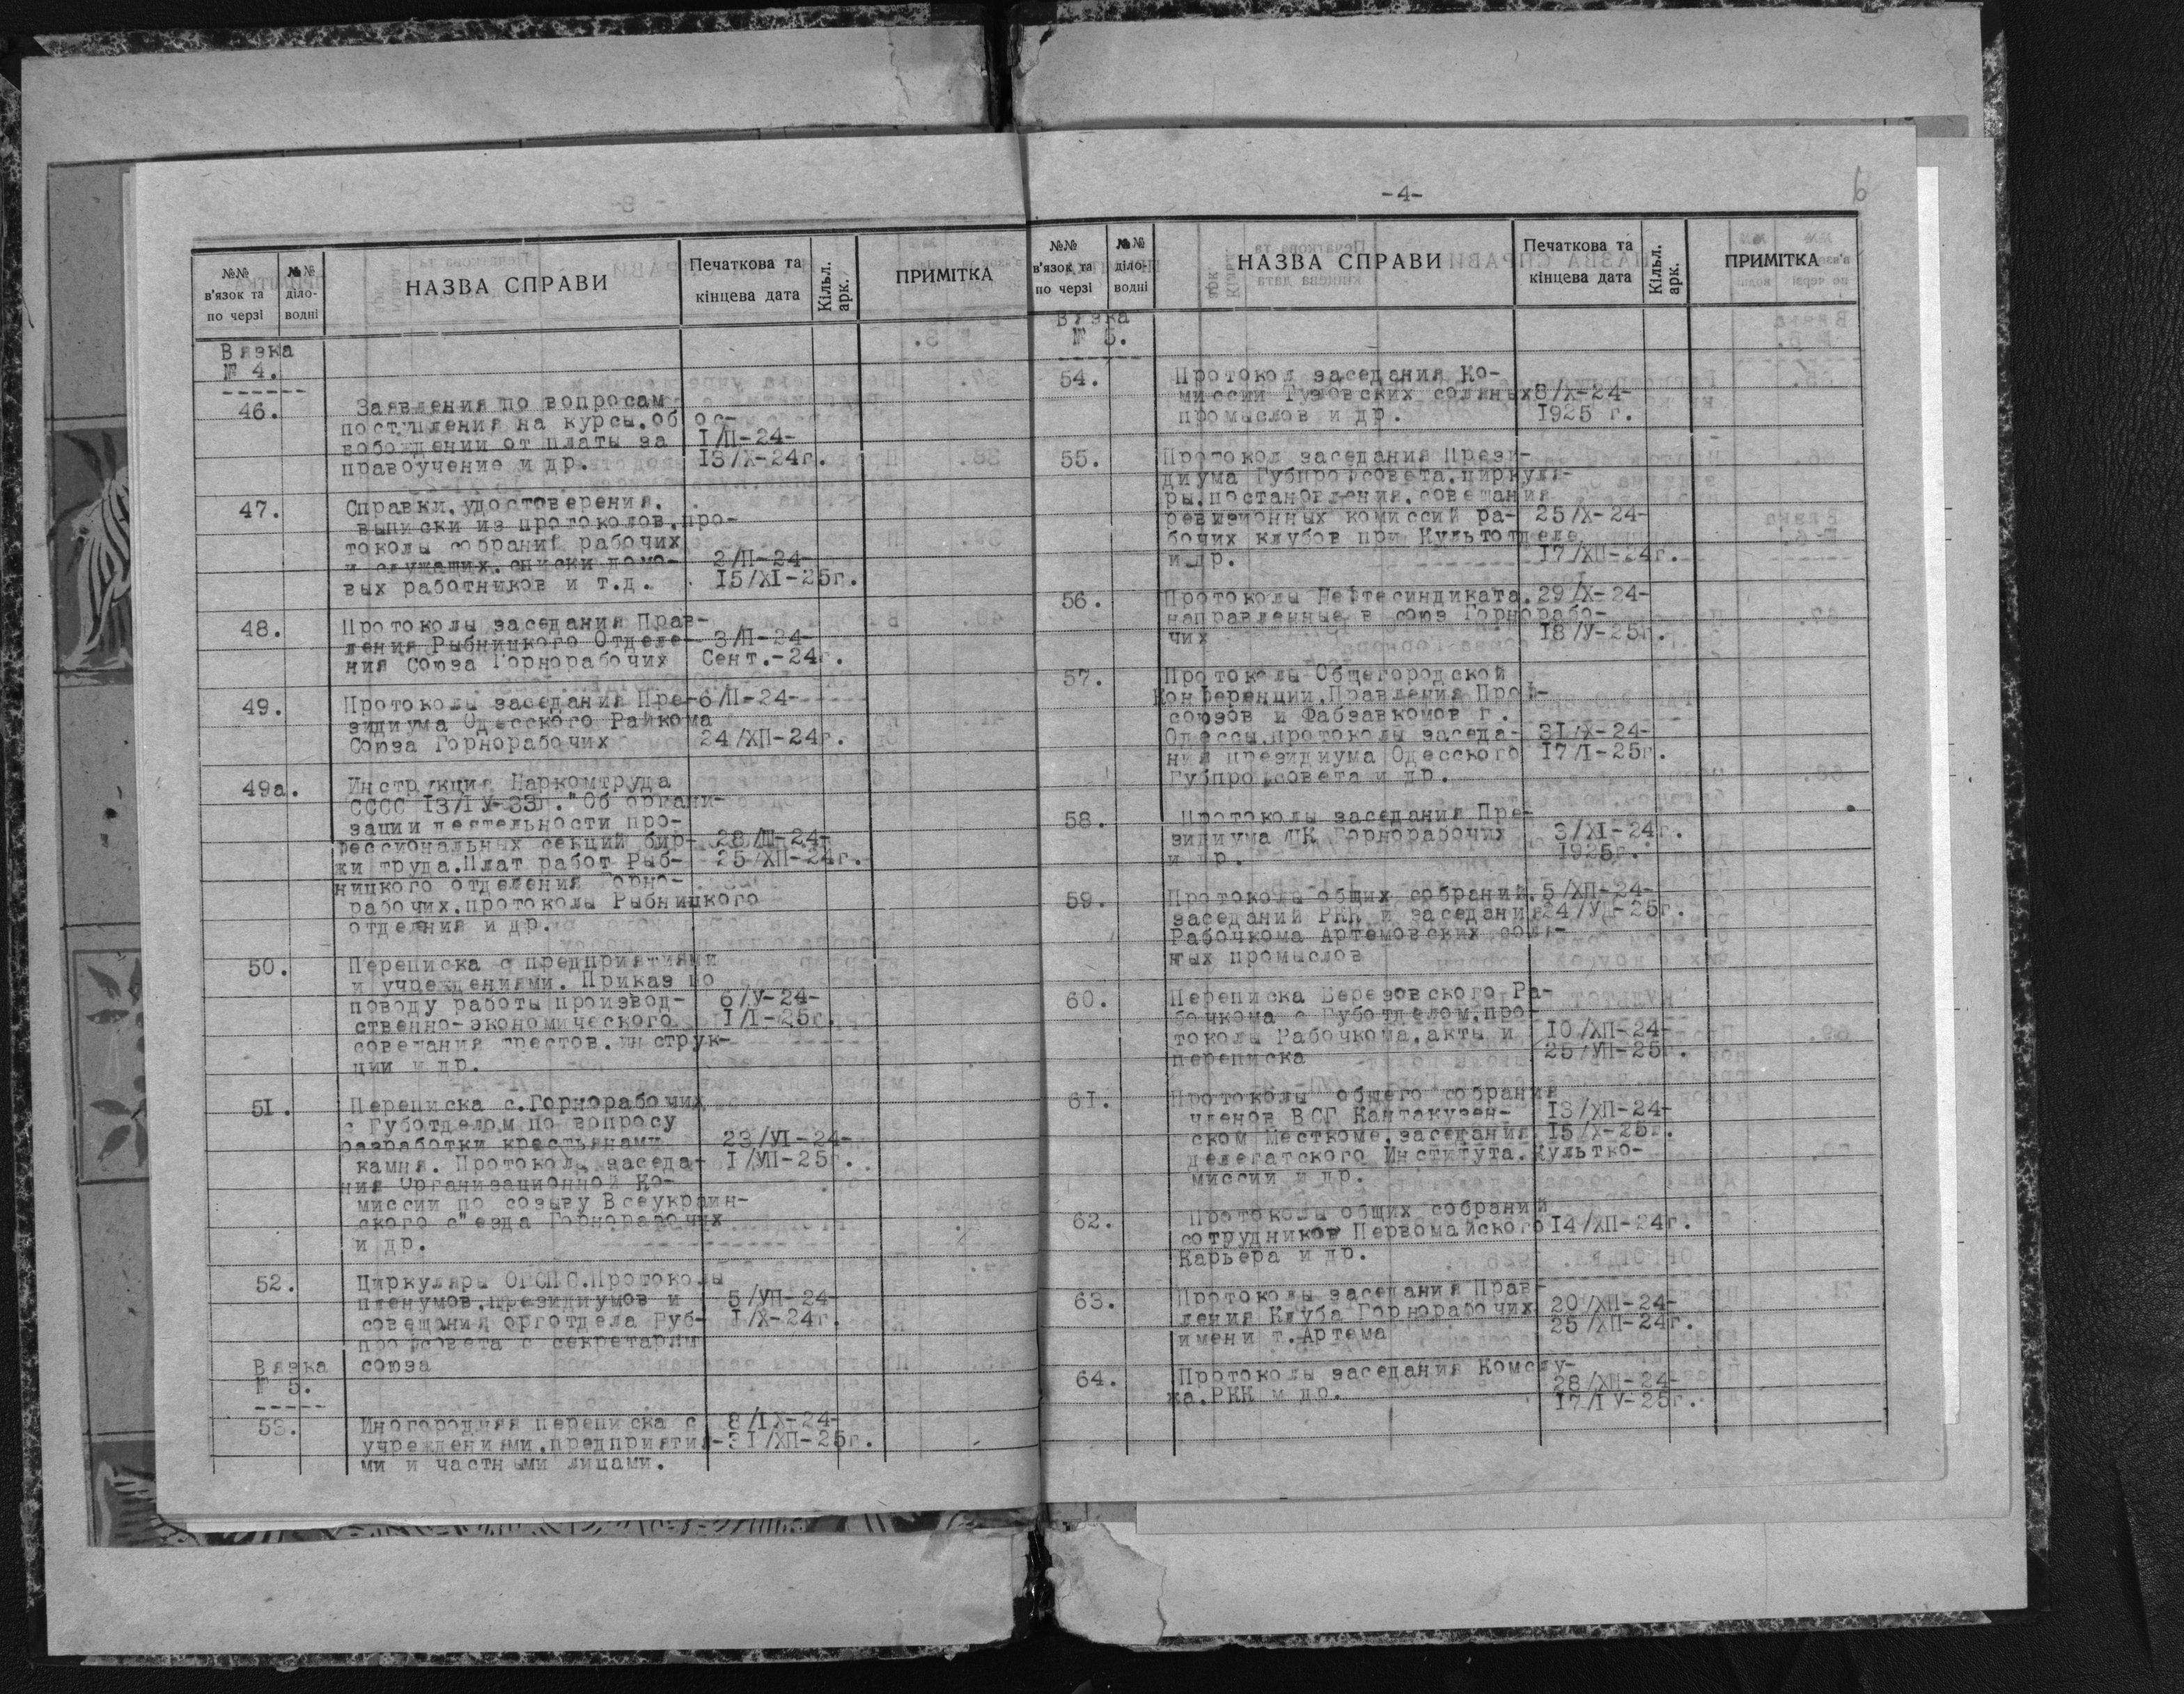 №№ в'язок та по черзі
№№ діло-водні
НАЗВА СПРАВИ
Печаткова та кінцева дата
Кільк. арк.
ПРИМІТКА
Вязка
№ 4.
46. Заявления по вопросам
поступления на курсы, об ос-
вобождении от платы за I/П-24-
правоучение и др. I3/X-24г.
47. Справки, удостоверения,
выписки из протоколов, про-
токолы собраний рабочих
и служащих, списки домо- 2/П-24-
вых работников и т.д. I5/XI-25г.
48. Протоколы заседания Прав-
ления Рыбницкого Отделе- 3/П-24-
ния Союза Горнорабочих Сент.-24г.
49. Протоколы заседания Пре- 6/П-24-
зидиума Одесского Райкома
Союза Горнорабочих 24/XП-24г.
49а. Инструкция Наркомтруда
СССС I3/IУ-33г."Об органи-
зации деятельности про-
фессиональных секций бир- 28/Ш-24-
жи труда.Плат работ Рыб- 25/XП-24г.
ницкого отделения Горно-
рабочих,протоколы Рыбницкого
отделения и др.
50. Переписка с предприятиями
и учреждениями. Приказ по
поводу работы производ- 6/У-24-
ственно-экономического I/I-25г.
совещания трестов, инструк-
ции и др.
5I. Переписка с.Горнорабочих
с Губотделом по вопросу
разработки крестьянами 23/УI-24-
камня. Протокол, заседа- I/УП-25г.
ния Организационной Ко-
миссии по созыву Всеукраин-
ского с"езда Горнорабочих
и др.
52. Циркуляры ОГСПС.Протоколы
пленумов,президиумов и 5/УП-24-
совещания орготдела Губ- I/X-24г.
профсовета с секретарям
союза
Вязка
№ 5.
53. Иногородняя переписка с 8/IX-24-
учреждениями,предприятия- 3I/XП-25г.
ми и частными лицами.
-4-
6
№№ в'язок та по черзі
№№ діло-водні
НАЗВА СПРАВИ
Печаткова та кінцева дата
Кільк. арк.
ПРИМІТКА
Вязка
№ 5.
54. Протокол заседания Ко-
миссии Тузловских соляных 8/X-24-
промыслов и др. 1925 г.
55. Протокол заседания Прези-
диума Губпрофсовета,циркуля-
ры,постановления,совещания
ревизионных комиссий ра- 25/X-24-
бочих клубов при Культотделе
и др. I7/XП-24г.
56. Протоколы Нефтесиндиката, 29/X-24-
направленные в союз Горнорабо-
чих I8/У-25г.
57. Протоколы Общегородской
Конференции,Правления Проф-
союзов и Фабзавкомов г.
Одессы,протоколы заседа- 3I/X-24-
ния президиума Одесского I7/I-25г.
Губпрофсовета и др.
58. Протоколы заседания Пре-
зидиума ЦК Горнорабочих 3/XI-24г.
и др. 1925г.
59. Протоколы общих собраний, 5/XП-24-
заседаний РКК и заседания 24/УП-25г.
Рабочкома Артемовских соля-
ных промыслов
60. Переписка Березовского Ра-
бочкома с Губотделом,про-
токолы Рабочкома,акты и I0/XП-24-
переписка 25/УП-25г.
6I. Протоколы общего собрания
членов ВСГ Кантакузен- I3/XП-24-
ском Месткоме,заседания I5/X-25г.
делегатского Института,Культко-
миссии и др.
62. Протоколы общих собраний
сотрудников Первомайского I4/XП-24г.
Карьера и др.
63. Протоколы заседания Прав-
ления Клуба Горнорабочих 20/XП-24-
имени т.Артема 25/XП-24г.
64. Протоколы заседания Комслу-
жа,РКК и др. 28/XП-24-
I7/IУ-25г.